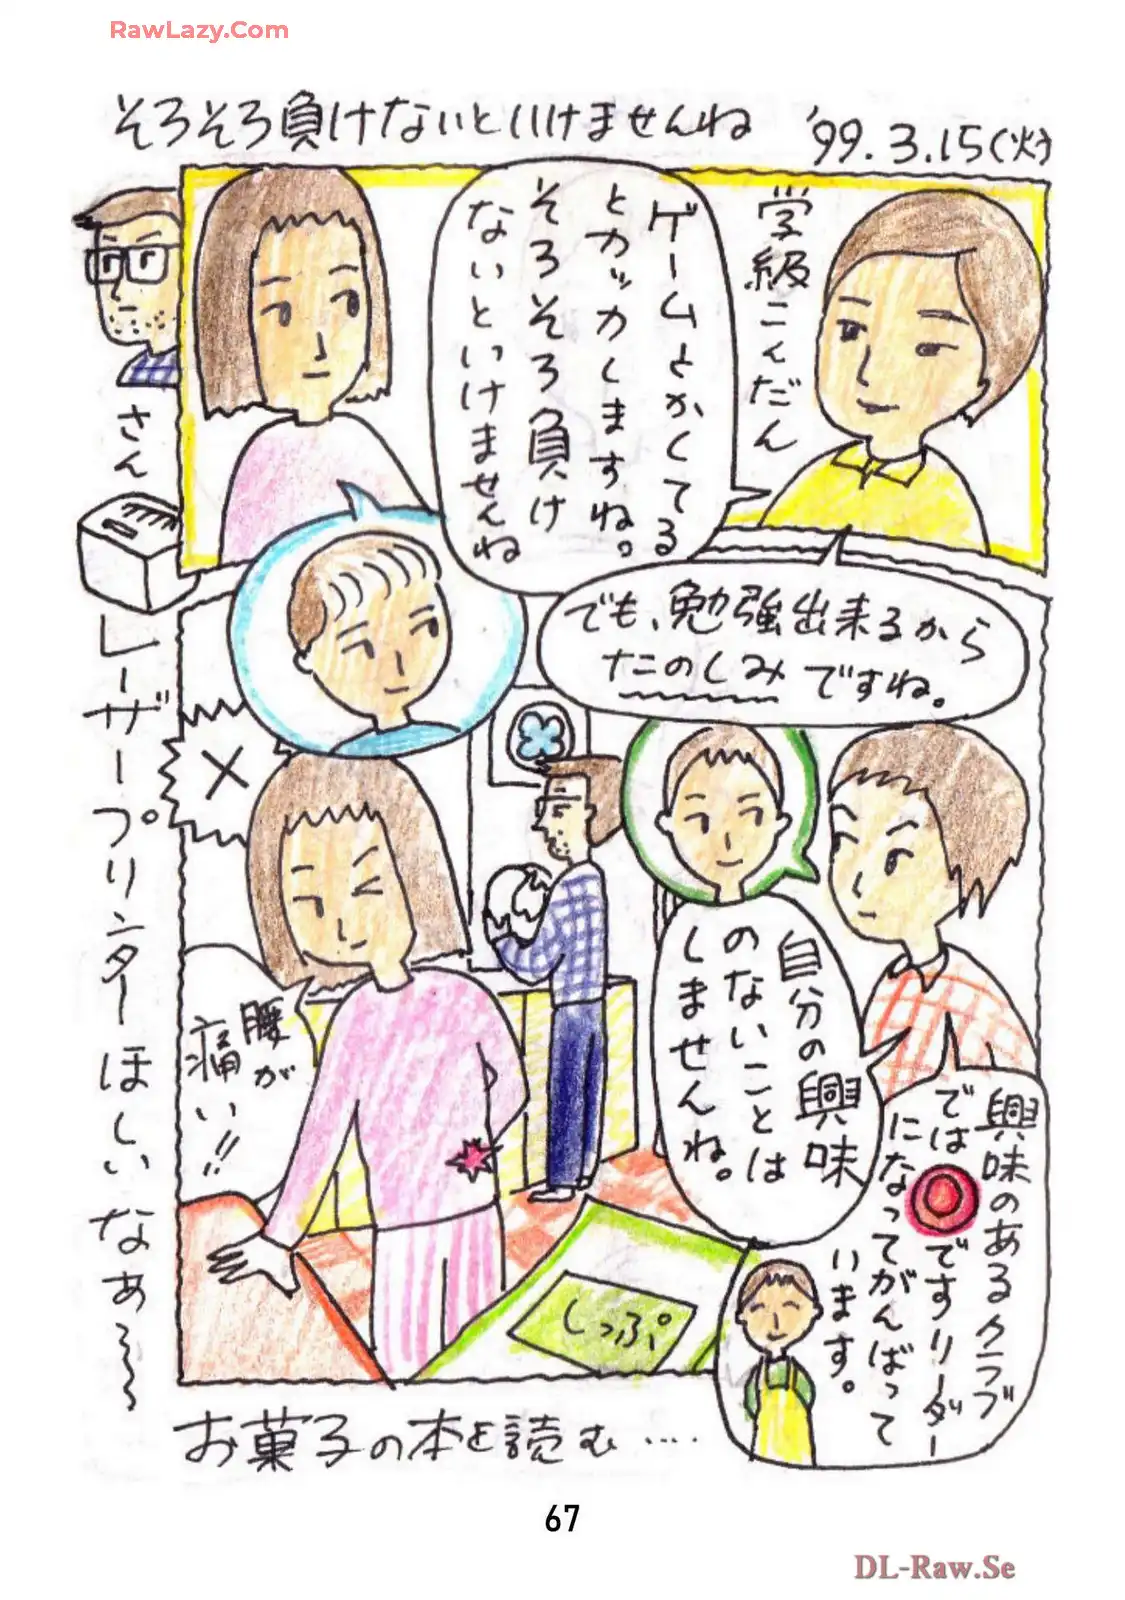 RawLazy.Com
そろそろ負けないといけませんね
'99.3.15(火)
学級こんだん
ゲームとかしてる
とカッカしますね。
そろそろ負け
ないといけませんね
でも、勉強出来るから
たのしみですね。
さん
レーザープリンターほしいなぁ〜〜
×
腰が
痛い!!
自分の興味
のないことは
しませんね。
興味のあるクラブ
では◎ですリーダー
になってがんばって
います。
しっぷ
お菓子の本を読む….
67
DL-Raw.Se